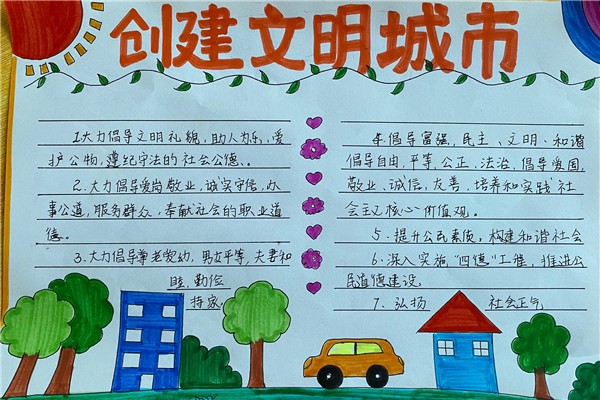 创建文明城市
1.大力倡导文明礼貌,助人为乐,爱
护公物,遵纪守法的社会公德、。
2.大力倡导爱岗敬业,诚实守信,办
事公道,服务群众,奉献社会的职业道
德。
3.大力倡导尊老爱幼,男女平等,夫妻和
睦,勤俭
持家,
4.倡导富强,民主、文明、和谐
倡导自由,平等,公正,法治,倡导爱国,
敬业,诚信,友善,培养和实践社
会主义核心价值观。
5、提升公民素质,构建和谐社会
6.深入实施"四德"工程,推进公
民道德建设。
7、弘扬 社会正气